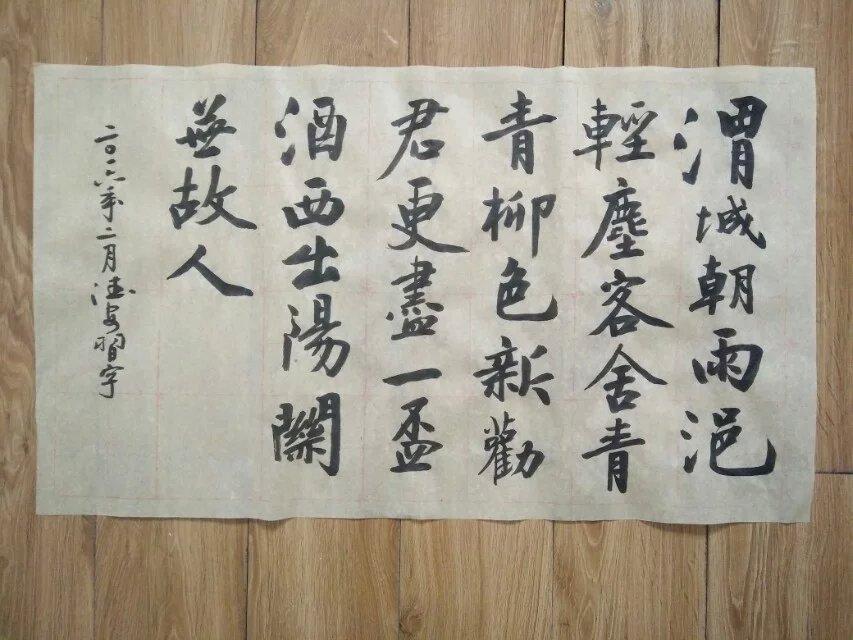 渭城朝雨浥
輕塵客舍青
青柳色新勸
君更盡一盃
酒西出陽關
無故人
二〇一六年二月德安習字